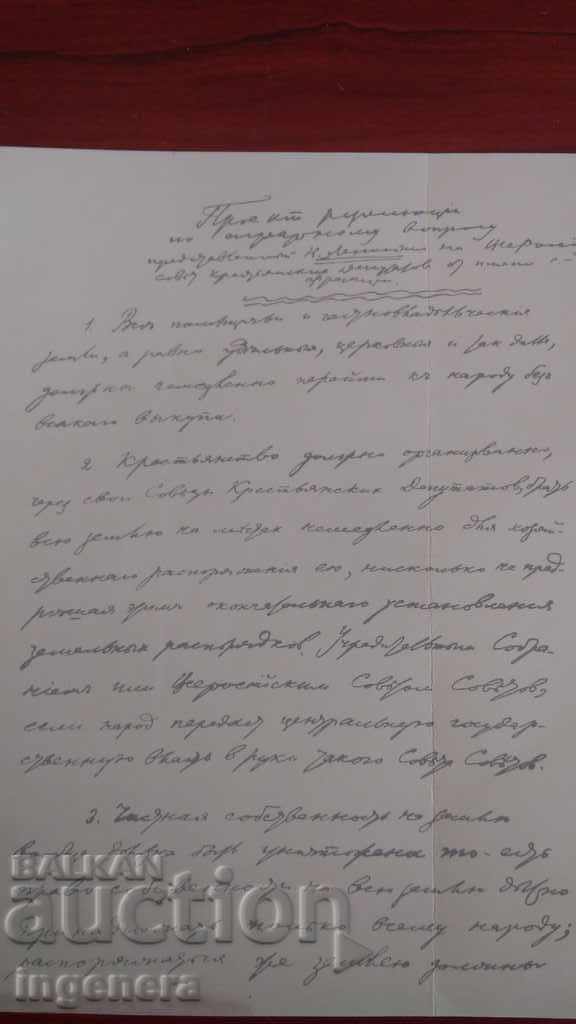 Проект резолюции
по аграрному вопросу
представленной Н. Лениным на Всеросс.
совет крестьянских депутатов от имени с-д
фракции.
1. Все помещичьи и частновладельческия
земли, а равно удельныя, церковныя и так далее,
должны немедленно перейти къ народу безъ
всякаго выкупа.
2. Крестьянство должно организованно,
через свои Советы Крестьянских Депутатов, брать
всю землю на местах немедленно для хозяй-
ственнаго распоряжения ею, нисколько не пред-
решая этим окончательнаго установления
земельных распорядков Учредительным Собра-
нием или Всероссийским Советом Советов,
если народ передаст центральную государ-
ственную власть в руки такого Совета Советов.
3. Частная собственность на землю
вообще должна быть уничтожена то-есть
право собственности на всю землю должно
принадлежать только всему народу;
распоряжаться же землею должны
BALKAN
auction
ingenera